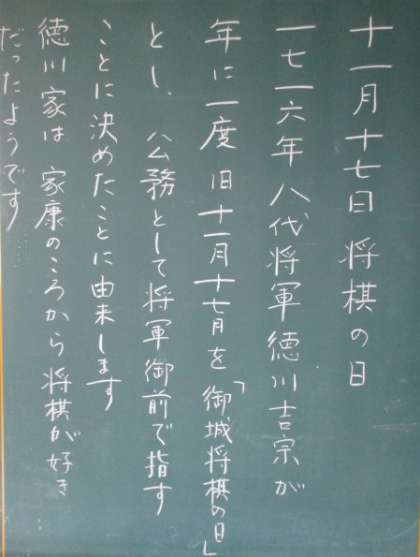 十一月十七日 将棋の日
一七一六年 八代将軍徳川吉宗が
年に一度 旧十一月十七月を「御城将棋の日」
とし、公務として将軍御前で指す
ことに決めたことに由来します
徳川家は 家康のころから 将棋が好き
だったようです……